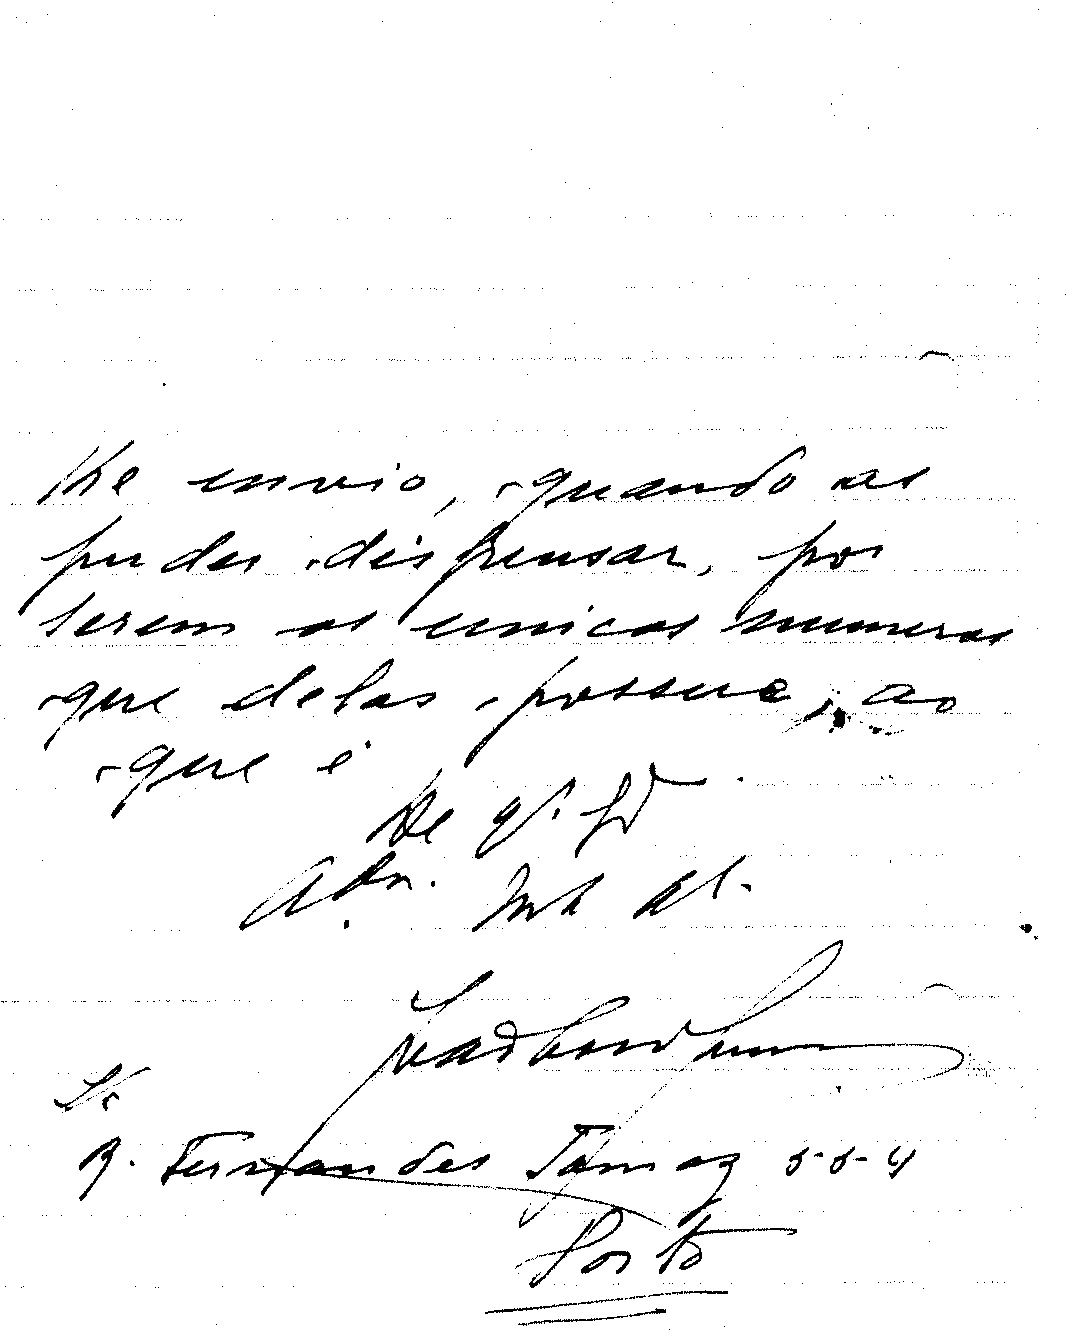 lhe envio, quando as
puder dispensar, por
serem os unicos numeros
que delas possue, ao
que é
De V.
Adm.
Sr
R. Fernandes Tomaz
Porto